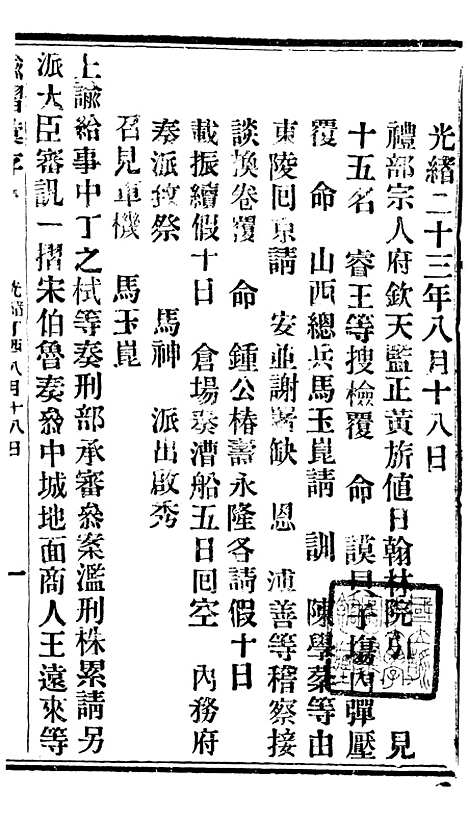 光緒二十三年八月十八日
禮部宗人府欽天監正黃旂値日翰林院引　見
十五名　睿王等搜檢覆　命　謨貝子塲內彈壓
覆　命　山西總兵馬玉崑請　訓　陳學棻等由
東陵回京請　安並謝署缺　恩　溥善等稽察接
談換卷覆　命　鍾公椿壽永隆各請假十日
載振續假十日　倉場奏漕船五日回空　內務府
奏派致祭　馬神　派出啟秀
召見軍機　馬玉崑
上諭給事中丁之栻等奏刑部承審叅案濫刑株累請另
派大臣審訊一摺宋伯魯奏叅中城地面商人王遠來等
諭摺彙存　光緒丁酉八月十八日　一